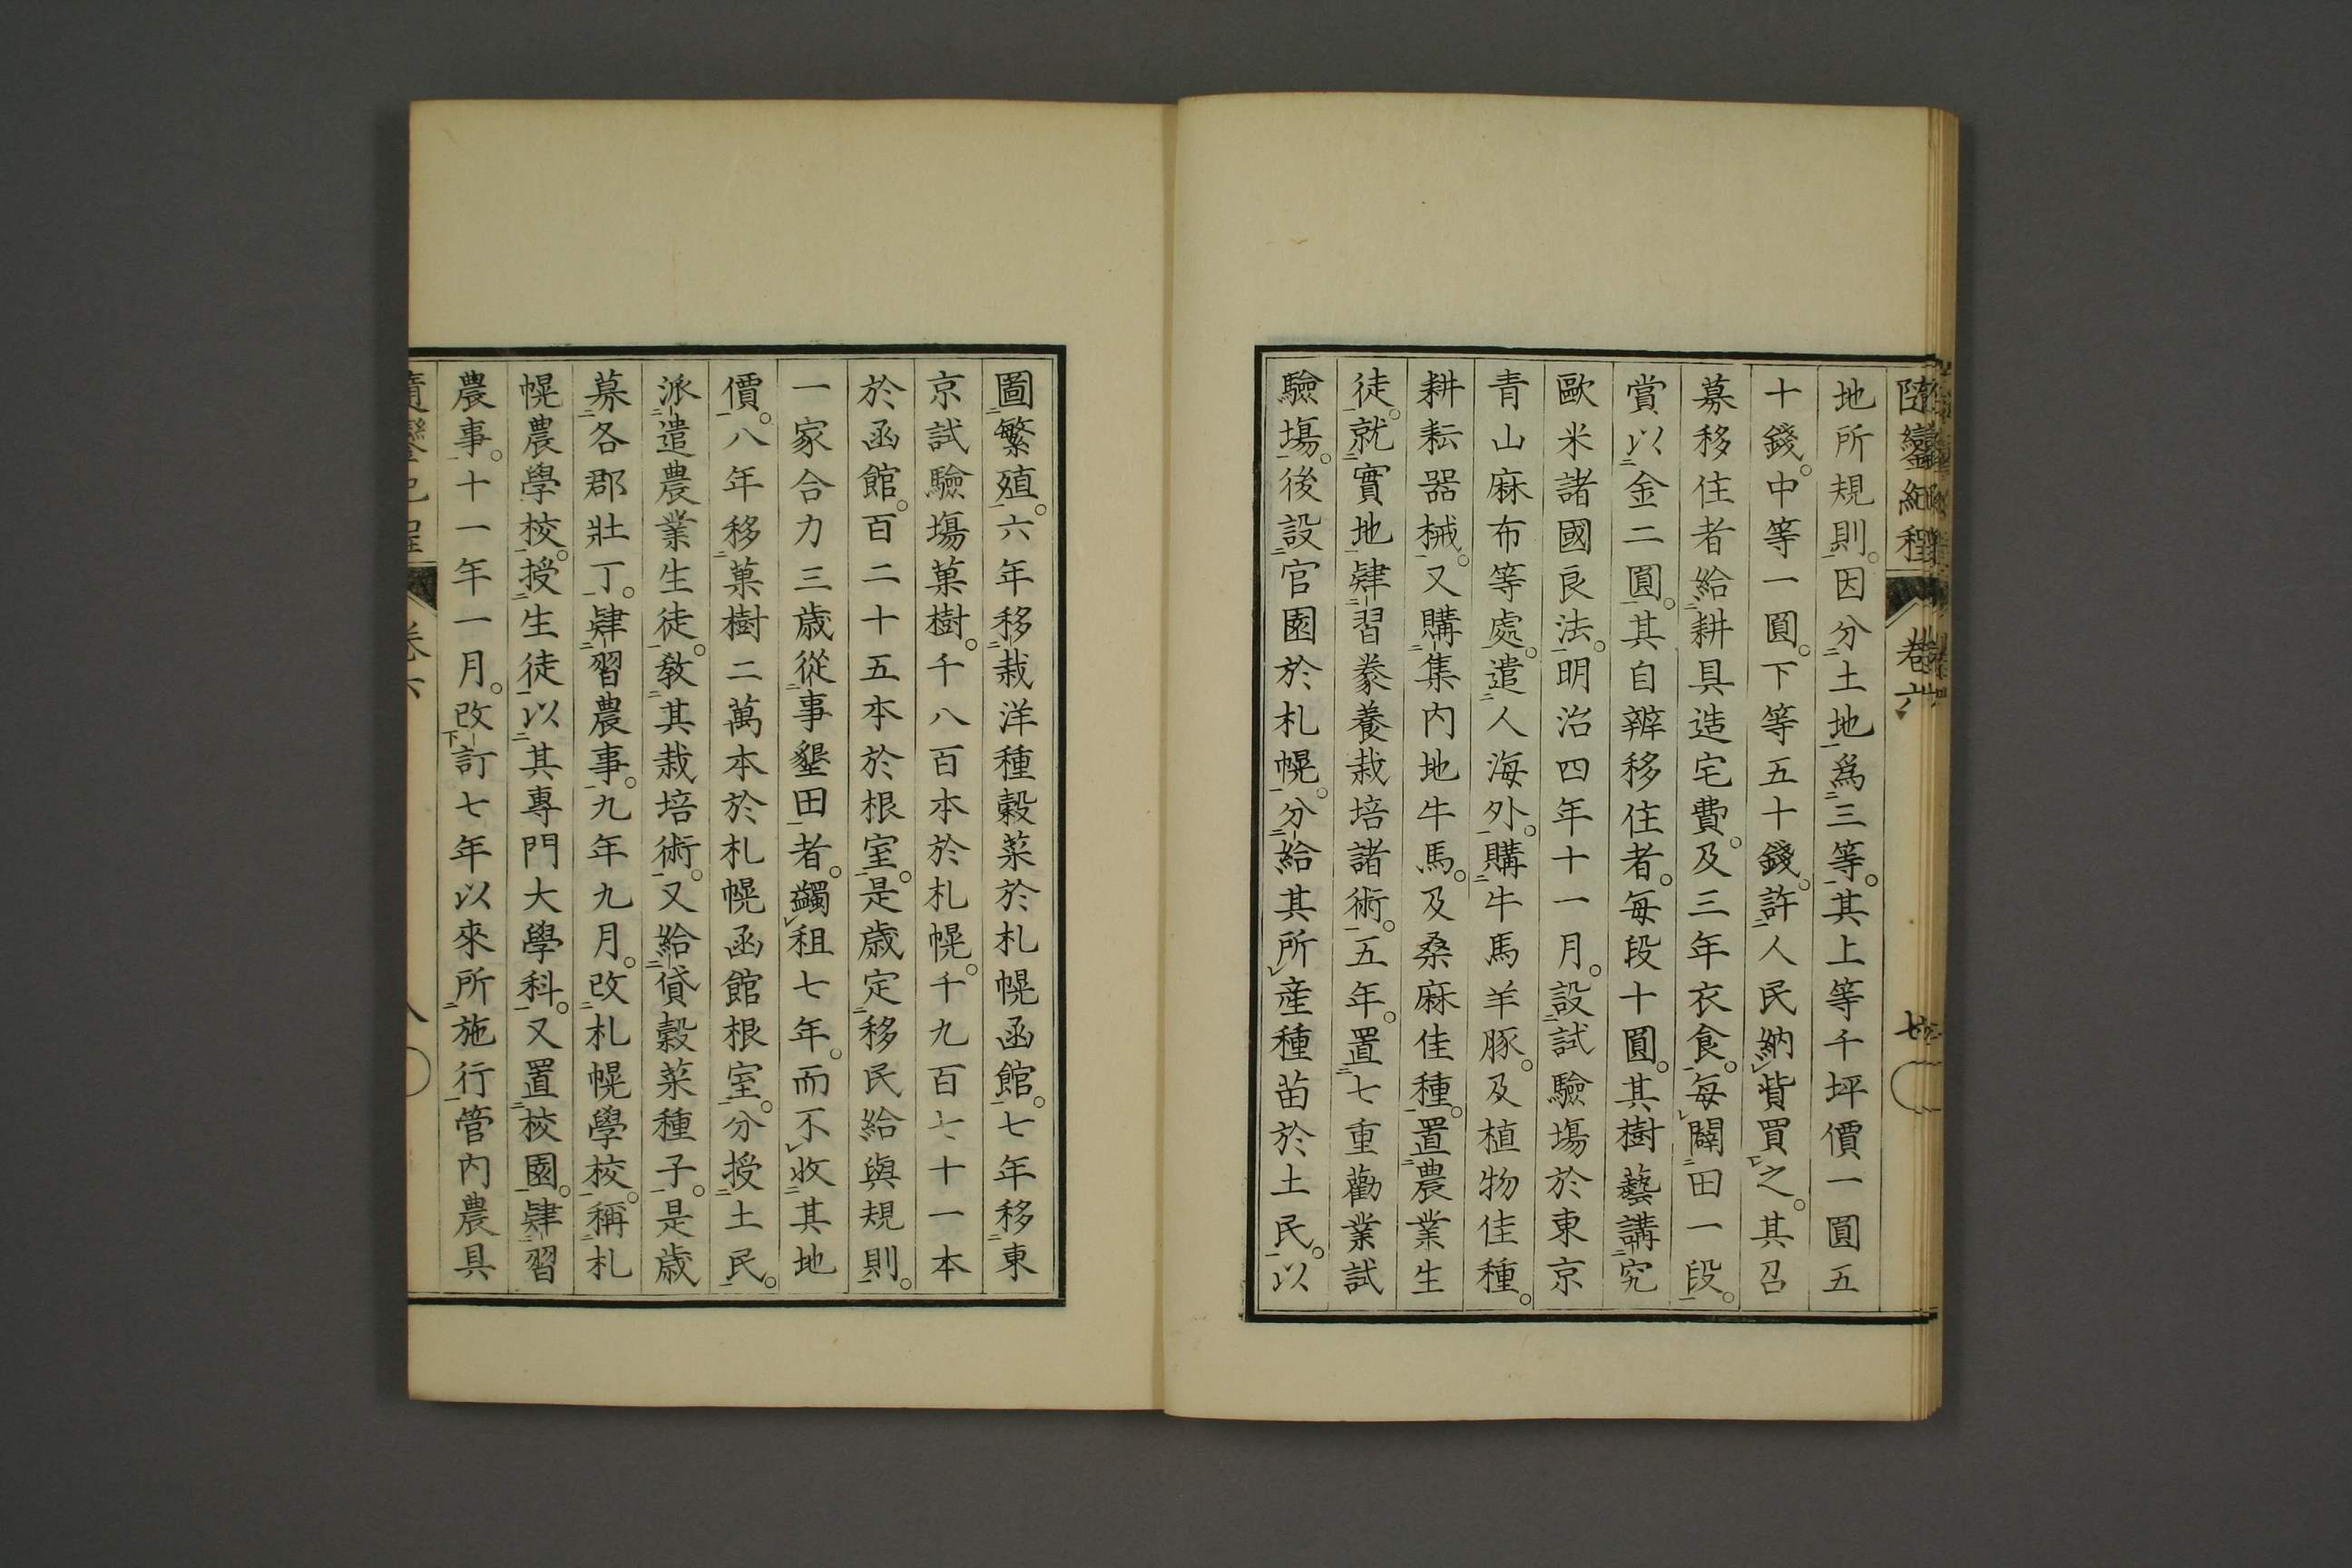 隨鑾紀程 卷六 七
地所規則。因分土地爲三等。其上等千坪價一圓五
十錢。中等一圓。下等五十錢。許人民納貲買之。其召
募移住者給耕具造宅費。及三年衣食。每闢田一段。
賞以金二圓。其自辨移住者。每段十圓。其樹藝講究
歐米諸國良法。明治四年十一月。設試驗塲於東京
青山麻布等處。遣人海外。購牛馬羊豚。及植物佳種。
耕耘器械。又購集内地牛馬。及桑麻佳種。置農業生
徒。就實地肄習豢養栽培諸術。五年。置七重勸業試
驗塲。後設官園於札幌。分給其所產種苗於土民。以
圖繁殖。六年移栽洋種穀菜於札幌函館。七年移東
京試驗塲菓樹。千八百本於札幌。千九百七十一本
於函館。百二十五本於根室。是歲定移民給與規則。
一家合力三歲從事墾田者。蠲租七年。而不收其地
價。八年移菓樹二萬本於札幌函館根室。分授土民。
派遣農業生徒。教其栽培術。又給貸穀菜種子。是歲
募各郡壯丁。肄習農事。九年九月。改札幌學校。稱札
幌農學校。授生徒以其專門大學科。又置校園。肄習
農事。十一年一月。改訂七年以來所施行管内農具